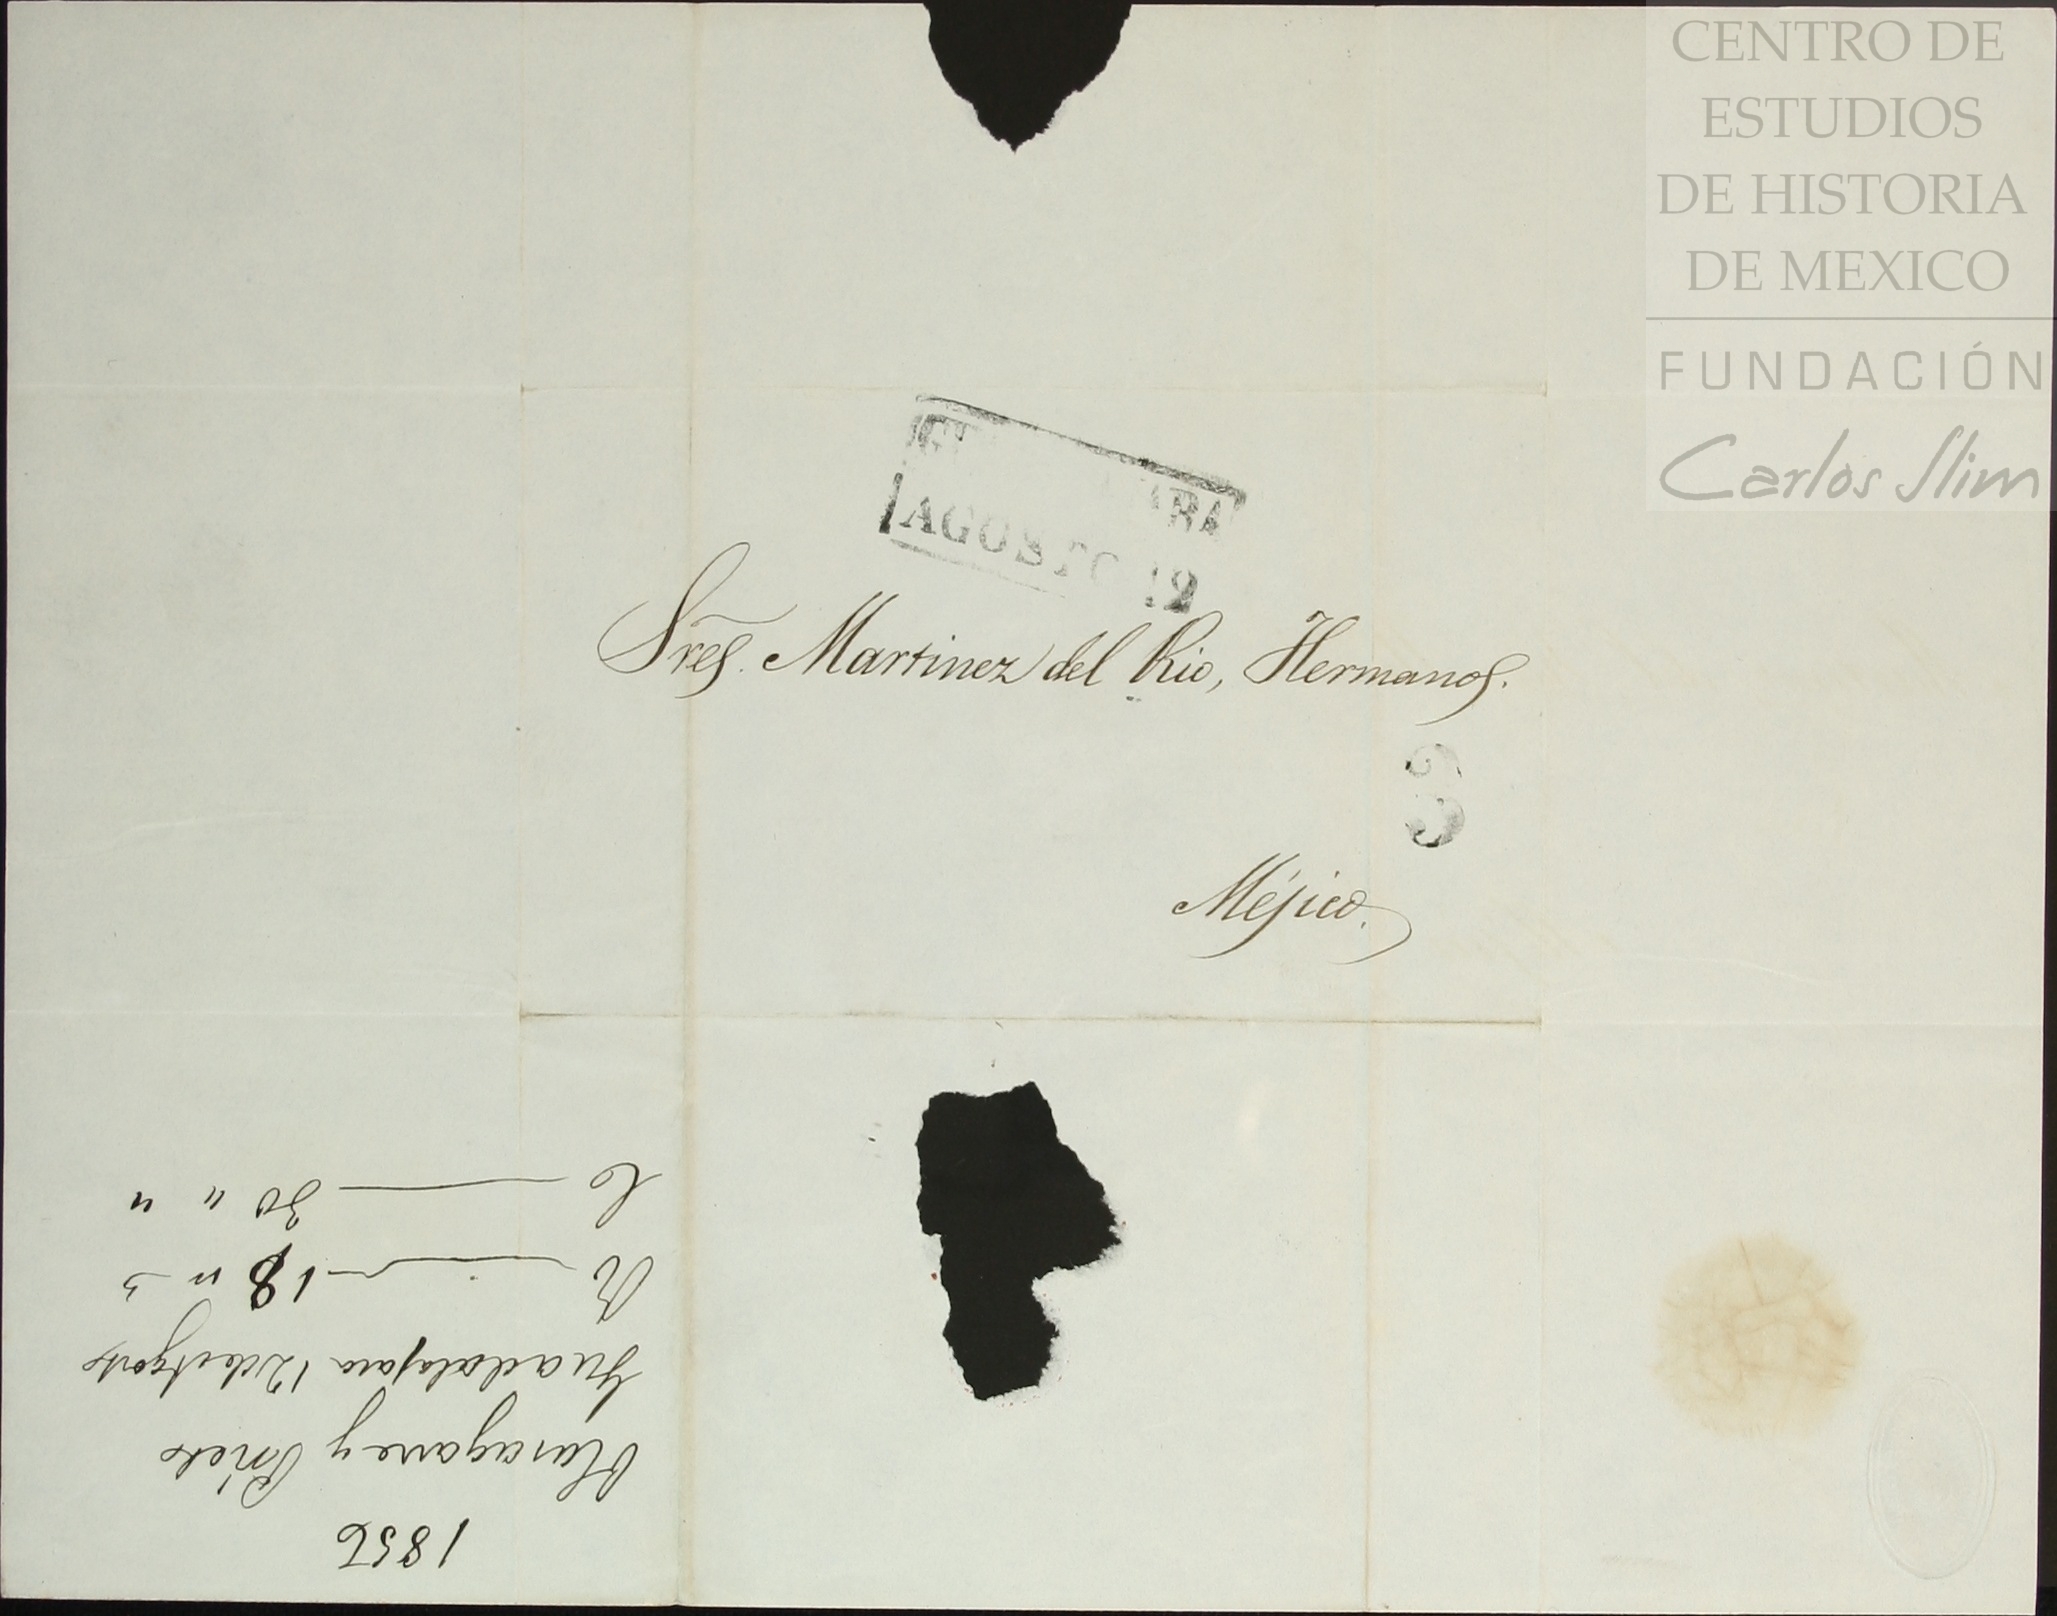 CENTRO DE
ESTUDIOS
DE HISTORIA
DE MEXICO
FUNDACIÓN
Carlos Slim
AGOSTO 12
Sres. Martinez del Rio, Hermanos.
Méjico.
1856
Olasagarre y Prieto
Guadalajara 12 de Agosto
R 18 " "
C 30 " "